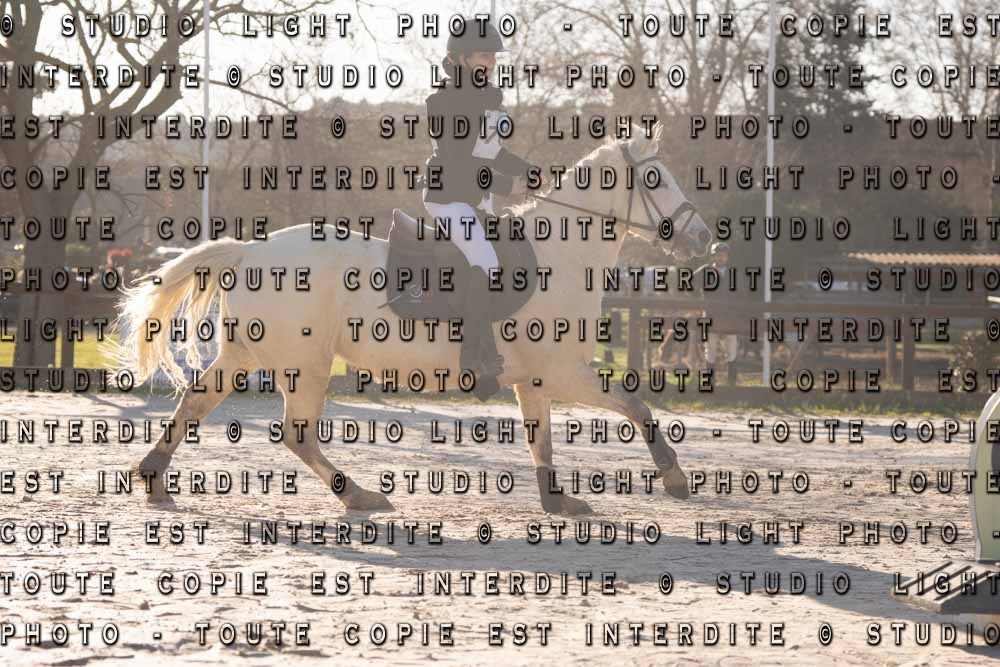 © STUDIO LIGHT PHOTO - TOUTE COPIE EST
INTERDITE © STUDIO LIGHT PHOTO - TOUTE COPIE
EST INTERDITE © STUDIO LIGHT PHOTO - TOUTE
COPIE EST INTERDITE © STUDIO LIGHT PHOTO -
TOUTE COPIE EST INTERDITE © STUDIO LIGHT
PHOTO - TOUTE COPIE EST INTERDITE © STUDIO
LIGHT PHOTO - TOUTE COPIE EST INTERDITE ©
STUDIO LIGHT PHOTO - TOUTE COPIE EST
INTERDITE © STUDIO LIGHT PHOTO - TOUTE COPIE
EST INTERDITE © STUDIO LIGHT PHOTO - TOUTE
COPIE EST INTERDITE © STUDIO LIGHT PHOTO -
TOUTE COPIE EST INTERDITE © STUDIO LIGHT
PHOTO - TOUTE COPIE EST INTERDITE © STUDIO